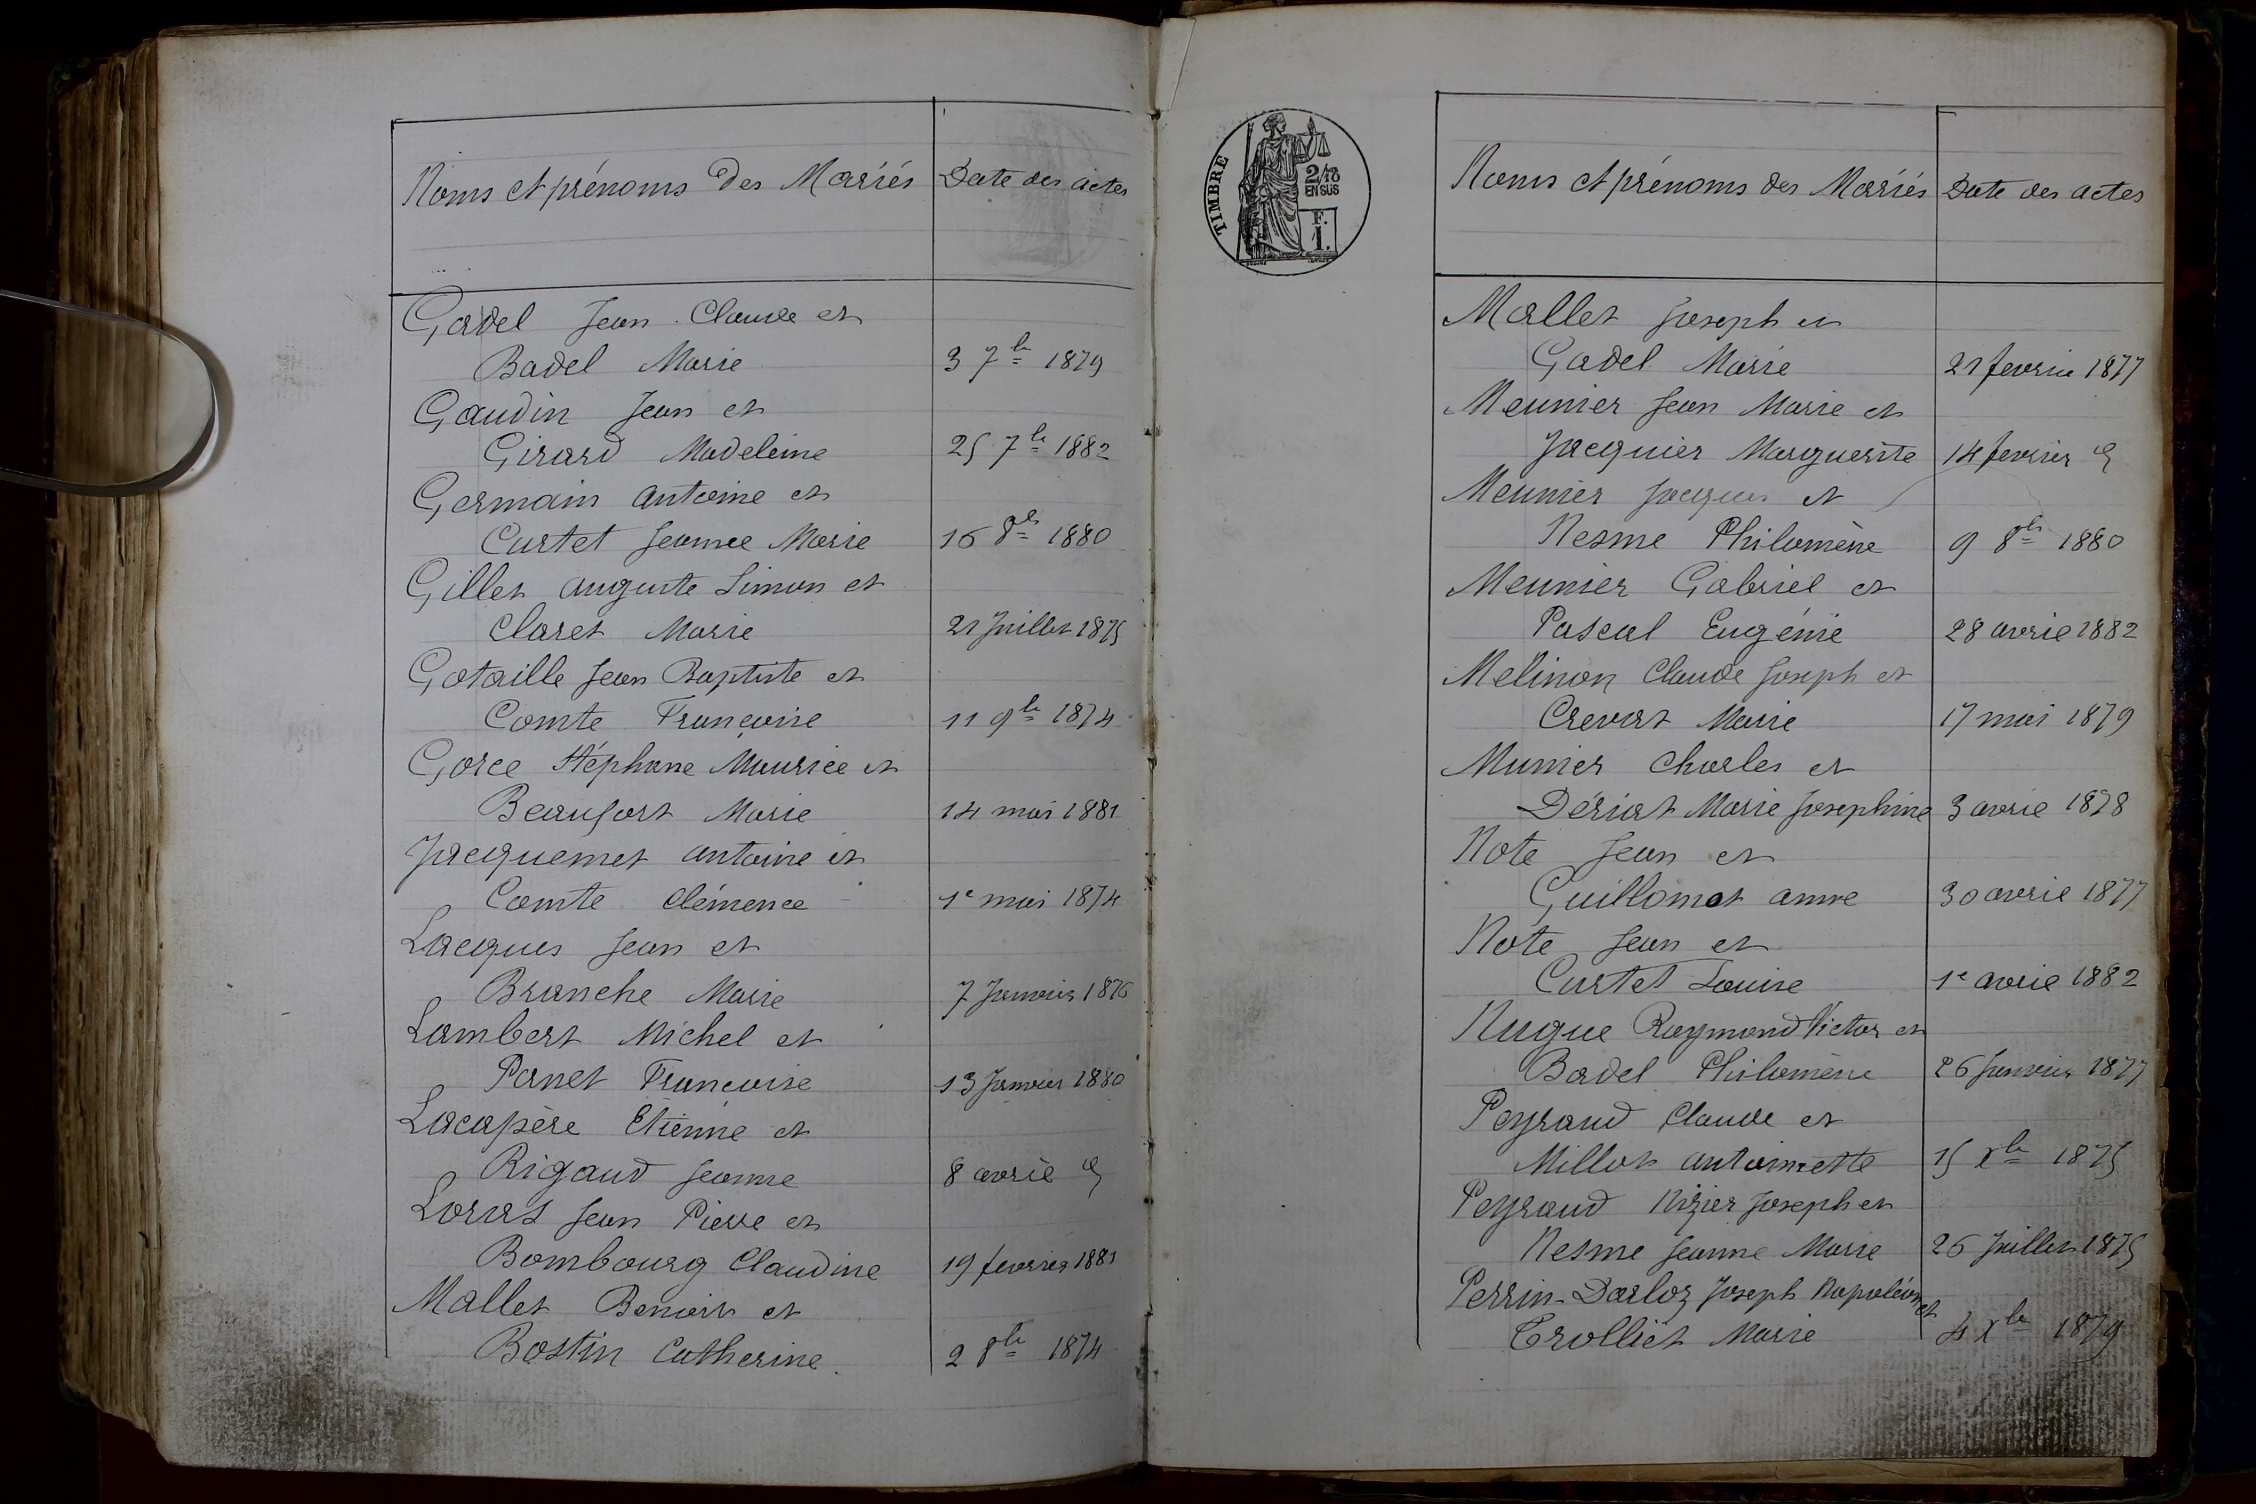 Noms et prénoms des Mariés Date des actes
Gadel Jean Claude et
Badel Marie 3 7bre 1879
Gaudin Jean et
Girard Madeleine 25 7bre 1882
Germain Antoine et
Curtet Jeanne Marie 16 8bre 1880
Gillet Auguste Simon et
Claret Marie 21 Juillet 1875
Gotaille Jean Baptiste et
Comte Françoise 11 9bre 1874
Gorce Stéphane Maurice et
Beaufort Marie 14 mai 1881
Jacquemet Antoine et
Comte Clémence 1e mai 1874
Lacques Jean et
Branche Marie 7 Janvier 1876
Lambert Michel et
Panet Françoise 13 Janvier 1880
Lacapère Etienne et
Rigaud Jeanne 8 avril
Loras Jean Pierre et
Bombourg Claudine 19 fevrier 1881
Mallet Benoit et
Bostin Catherine 2 8bre 1874
TIMBRE
2/10
EN SUS
F.
1.
Noms et prénoms des Mariés Date des actes
Mallet Joseph et
Gadel Marie 21 fevrier 1877
Meunier Jean Marie et
Jacquier Marguerite 14 fevrier
Meunier Jacques et
Nesme Philomène 9 8bre 1880
Meunier Gabriel et
Pascal Eugénie 28 avril 1882
Melinon Claude Joseph et
Crevat Marie 17 mai 1879
Munier Charles et
Dériat Marie Josephine 3 avril 1878
Note Jean et
Guillomot Anne 30 avril 1877
Note Jean et
Curtet Louise 1e avril 1882
Nugue Raymond Victor et
Badel Philomène 26 Janvier 1877
Peyraud Claude et
Millot Antoinette 15 Xbre 1875
Peyraud Nizier Joseph et
Nesme Jeanne Marie 26 Juillet 1875
Perrin-Darloz Joseph Napoléon et
Trolliet Marie 4 Xbre 1879